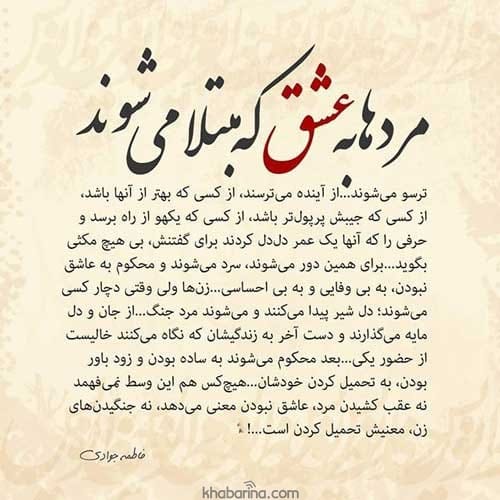 مردها به عشق که مبتلا می شوند
ترسو می‌شوند...از آینده می‌ترسند، از کسی که بهتر از آنها باشد،
از کسی که جیبش پرپول‌تر باشد، از کسی که یکهو از راه برسد و
حرفی را که آنها یک عمر دل‌دل کردند برای گفتنش، بی هیچ مکثی
بگوید...برای همین دور می‌شوند، سرد می‌شوند و محکوم به عاشق
نبودن، به بی وفایی و به بی احساسی...زن‌ها ولی وقتی دچار کسی
می‌شوند؛ دل شیر پیدا می‌کنند و می‌شوند مرد جنگ...از جان و دل
مایه می‌گذارند و دست آخر به زندگیشان که نگاه می‌کنند خالیست
از حضور یکی...بعد محکوم می‌شوند به ساده بودن و زود باور
بودن، به تحمیل کردن خودشان...هیچ‌کس هم این وسط نمی‌فهمد
نه عقب کشیدن مرد، عاشق نبودن معنی می‌دهد، نه جنگیدن‌های
زن، معنیش تحمیل کردن است...!
فاطمه جوادی
khabarina.com